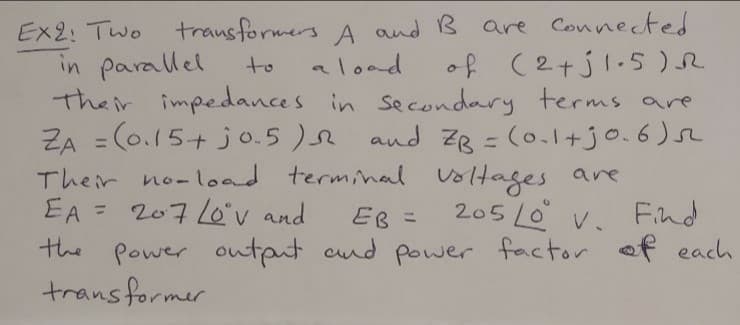 Ex2: Two transformers A and B are connected
in parallel to a load of (2+j1.5)Ω
their impedances in secondary terms are
ZA = (0.15+j0.5)Ω and ZB = (0.1+j0.6)Ω
Their no-load terminal voltages are
EA = 207∠0°V and EB = 205∠0° V. Find
the power output and power factor of each
transformer